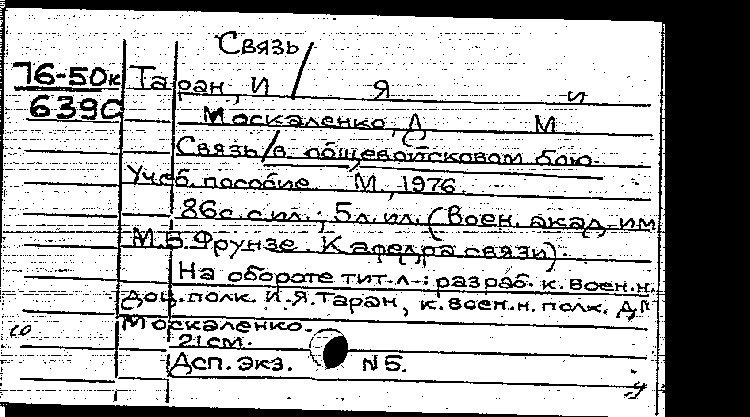 Связь
76-50к Таран, И Я и
6390 Москаленко, Д М
Связь/в общевойсковом бою.
Учеб. пособие М., 1976.
86с. с ил.; 5л. ил. (Воен. акад. им
М.В. Фрунзе. Кафедра связи).
На обороте тит. л.: разраб. к. воен. н.
доц. полк. И.Я. Таран, к. воен. н. полк. Д.М
Москаленко.
21см.
Дсп. экз. N5.